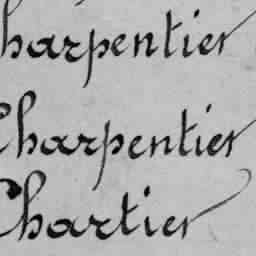 Charpentier
Charpentier
Chartier